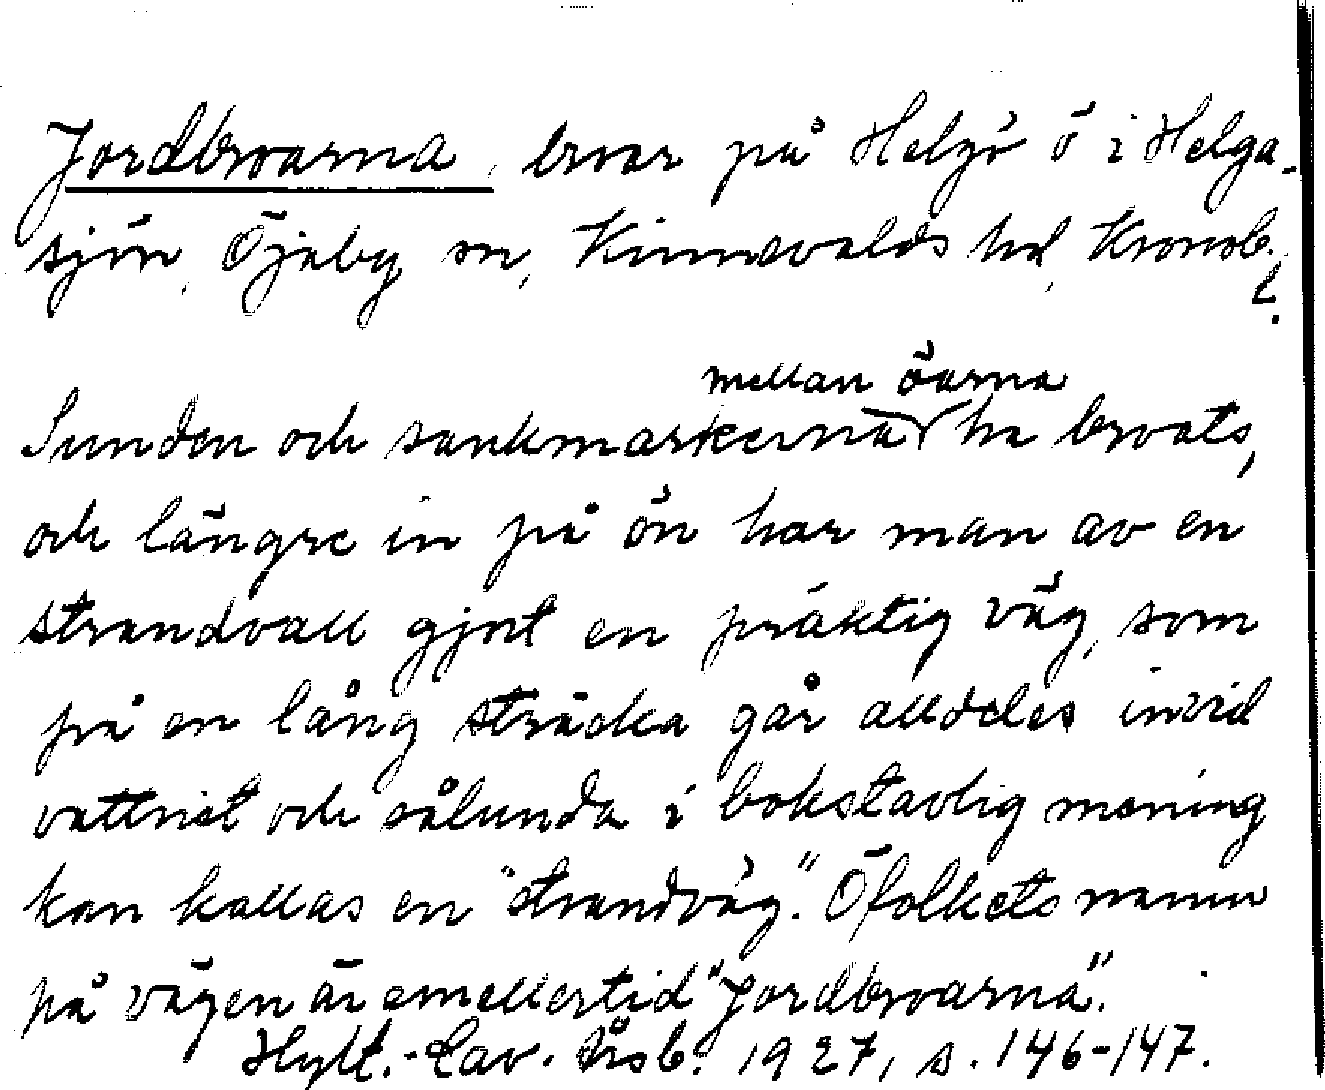 Jordbroarna, broar på Helgö ö i Helga-
sjön, Öjaby sn, Kinnevalds hd, Kronob.
l.
mellan öarna
Sunden och sankmarkerna ha broats,
och längre in på ön har man av en
strandvall gjort en präktig väg, som
på en lång sträcka går alldeles invid
vattnet och sålunda i bokstavlig mening
kan kallas en "strandväg". Öfolkets namn
på vägen är emellertid "Jordbroarna".
Hylt.-Cav. årsb. 1927, s. 146-147.